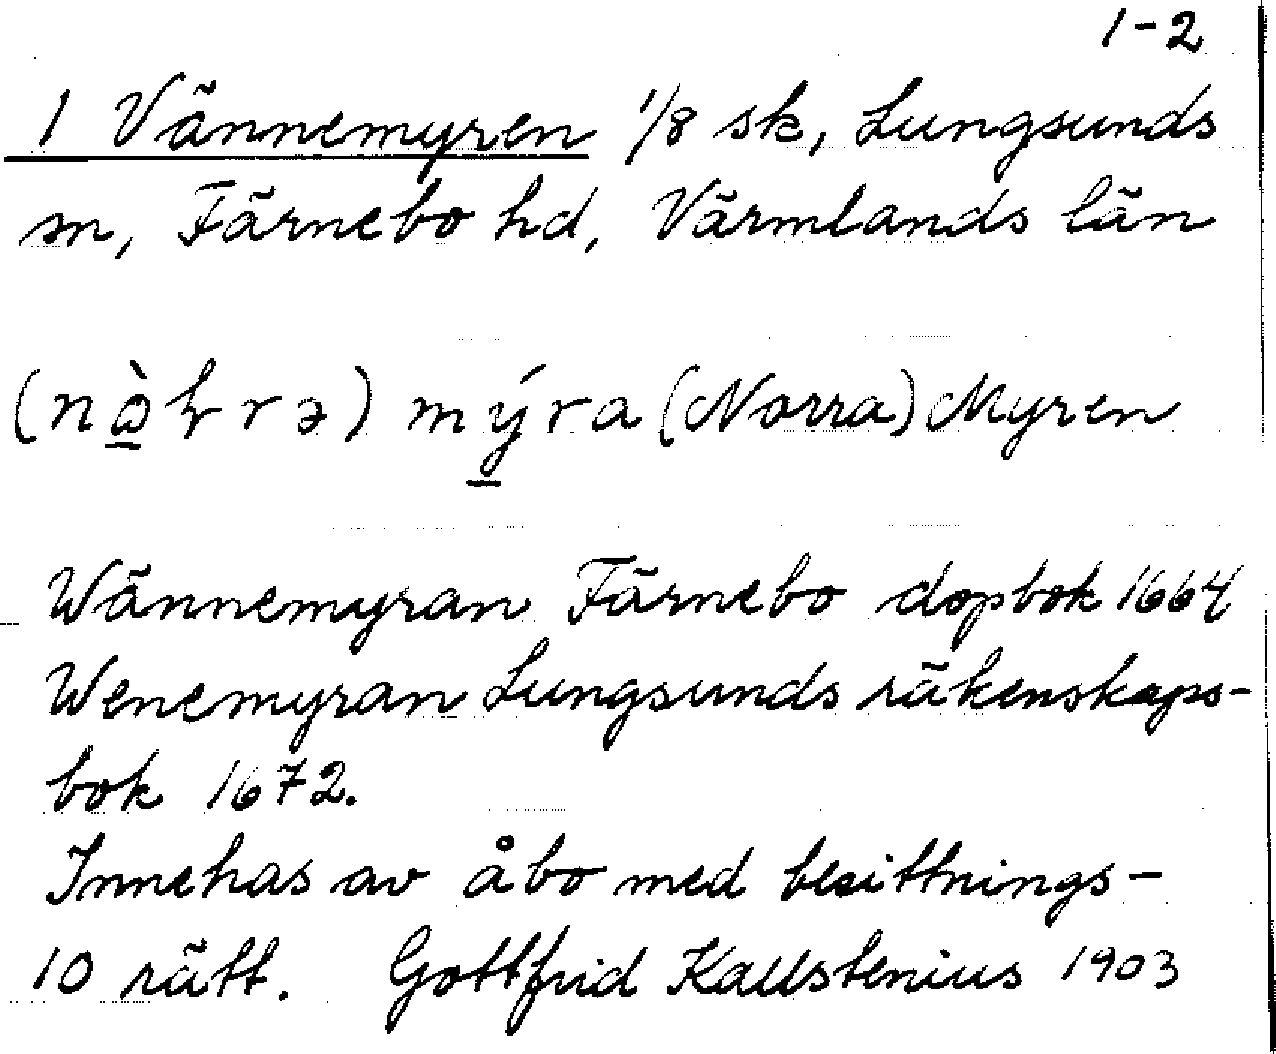 1-2
1 Vännemyren 1/8 sk, Lungsunds
sn, Färnebo hd, Värmlands län
(nò̱ɽrə) mý̱ra (Norra) Myren
Wännemyran Färnebo dopbok 1664
Wenemyran Lungsunds räkenskaps-
bok 1672.
Innehas av åbo med besittnings-
10 rätt. Gottfrid Kallstenius 1903